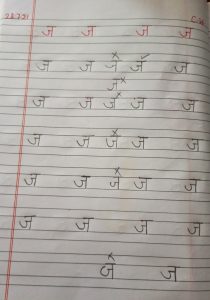 22.7.21 C.W
ज ज ज ज
ज ज ज ज ज
ज
ज ज ज ज ज
ज ज ज ज ज
ज ज ज ज ज
ज ज ज ज
ज ज